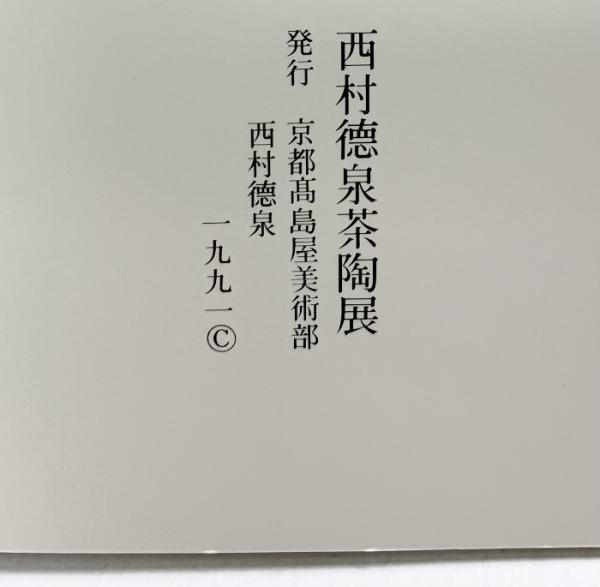 西村德泉茶陶展
発行　京都髙島屋美術部
西村德泉
一九九一©